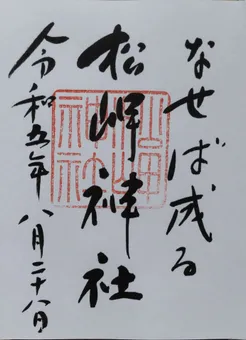 なせば成る
松岬神社
令和五年 八月二十八日